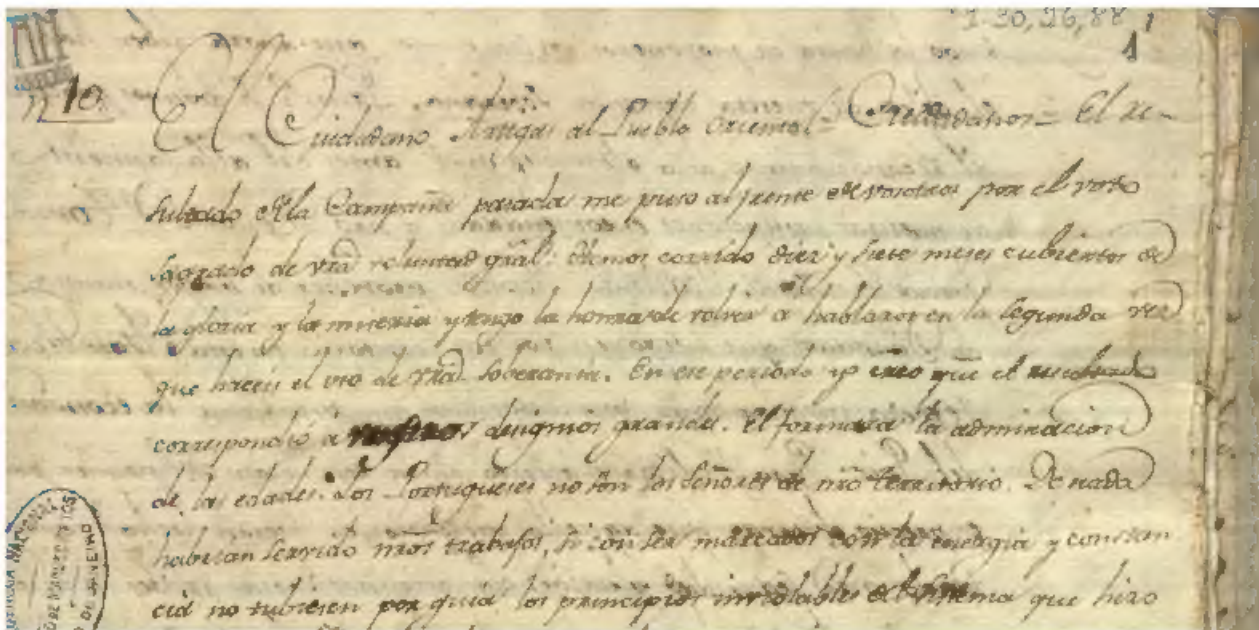 1-30,26,88 1
1
n 10.
El Ciudadano Artigas al Pueblo Oriental = Ciudadanos = El re-
sultado de la Campaña pasada me puso al frente de vosotros por el voto
sagrado de vrã voluntad gräl. Hemos corrido diez y siete meses cubiertos de
la gloria y la miseria y tengo la honra de volver a hablaros en la segunda vez
que haceis el uso de vrã soberania. En ese periodo yo creo que el resultado
correspondió a vuestros designios grandes. El formará la admiracion
de las edades. Los Portugueses no son los señores de nrõ territorio. De nada
habrian servido nrõs trabajos, si con ser marcados con la energia y constan
cia no tubiesen por guia los principios inviolables del sistema que hizo